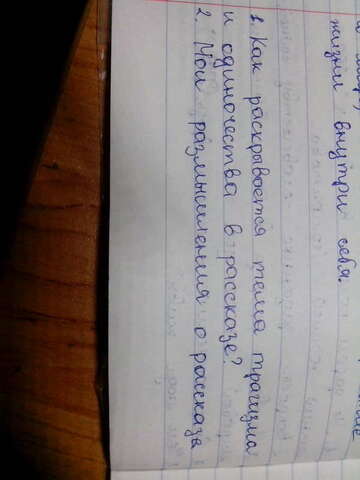 жизни внутри себя.
1. Как раскрывается тема трагизма
и одиночества в рассказе?
2. Мои размышления о рассказа